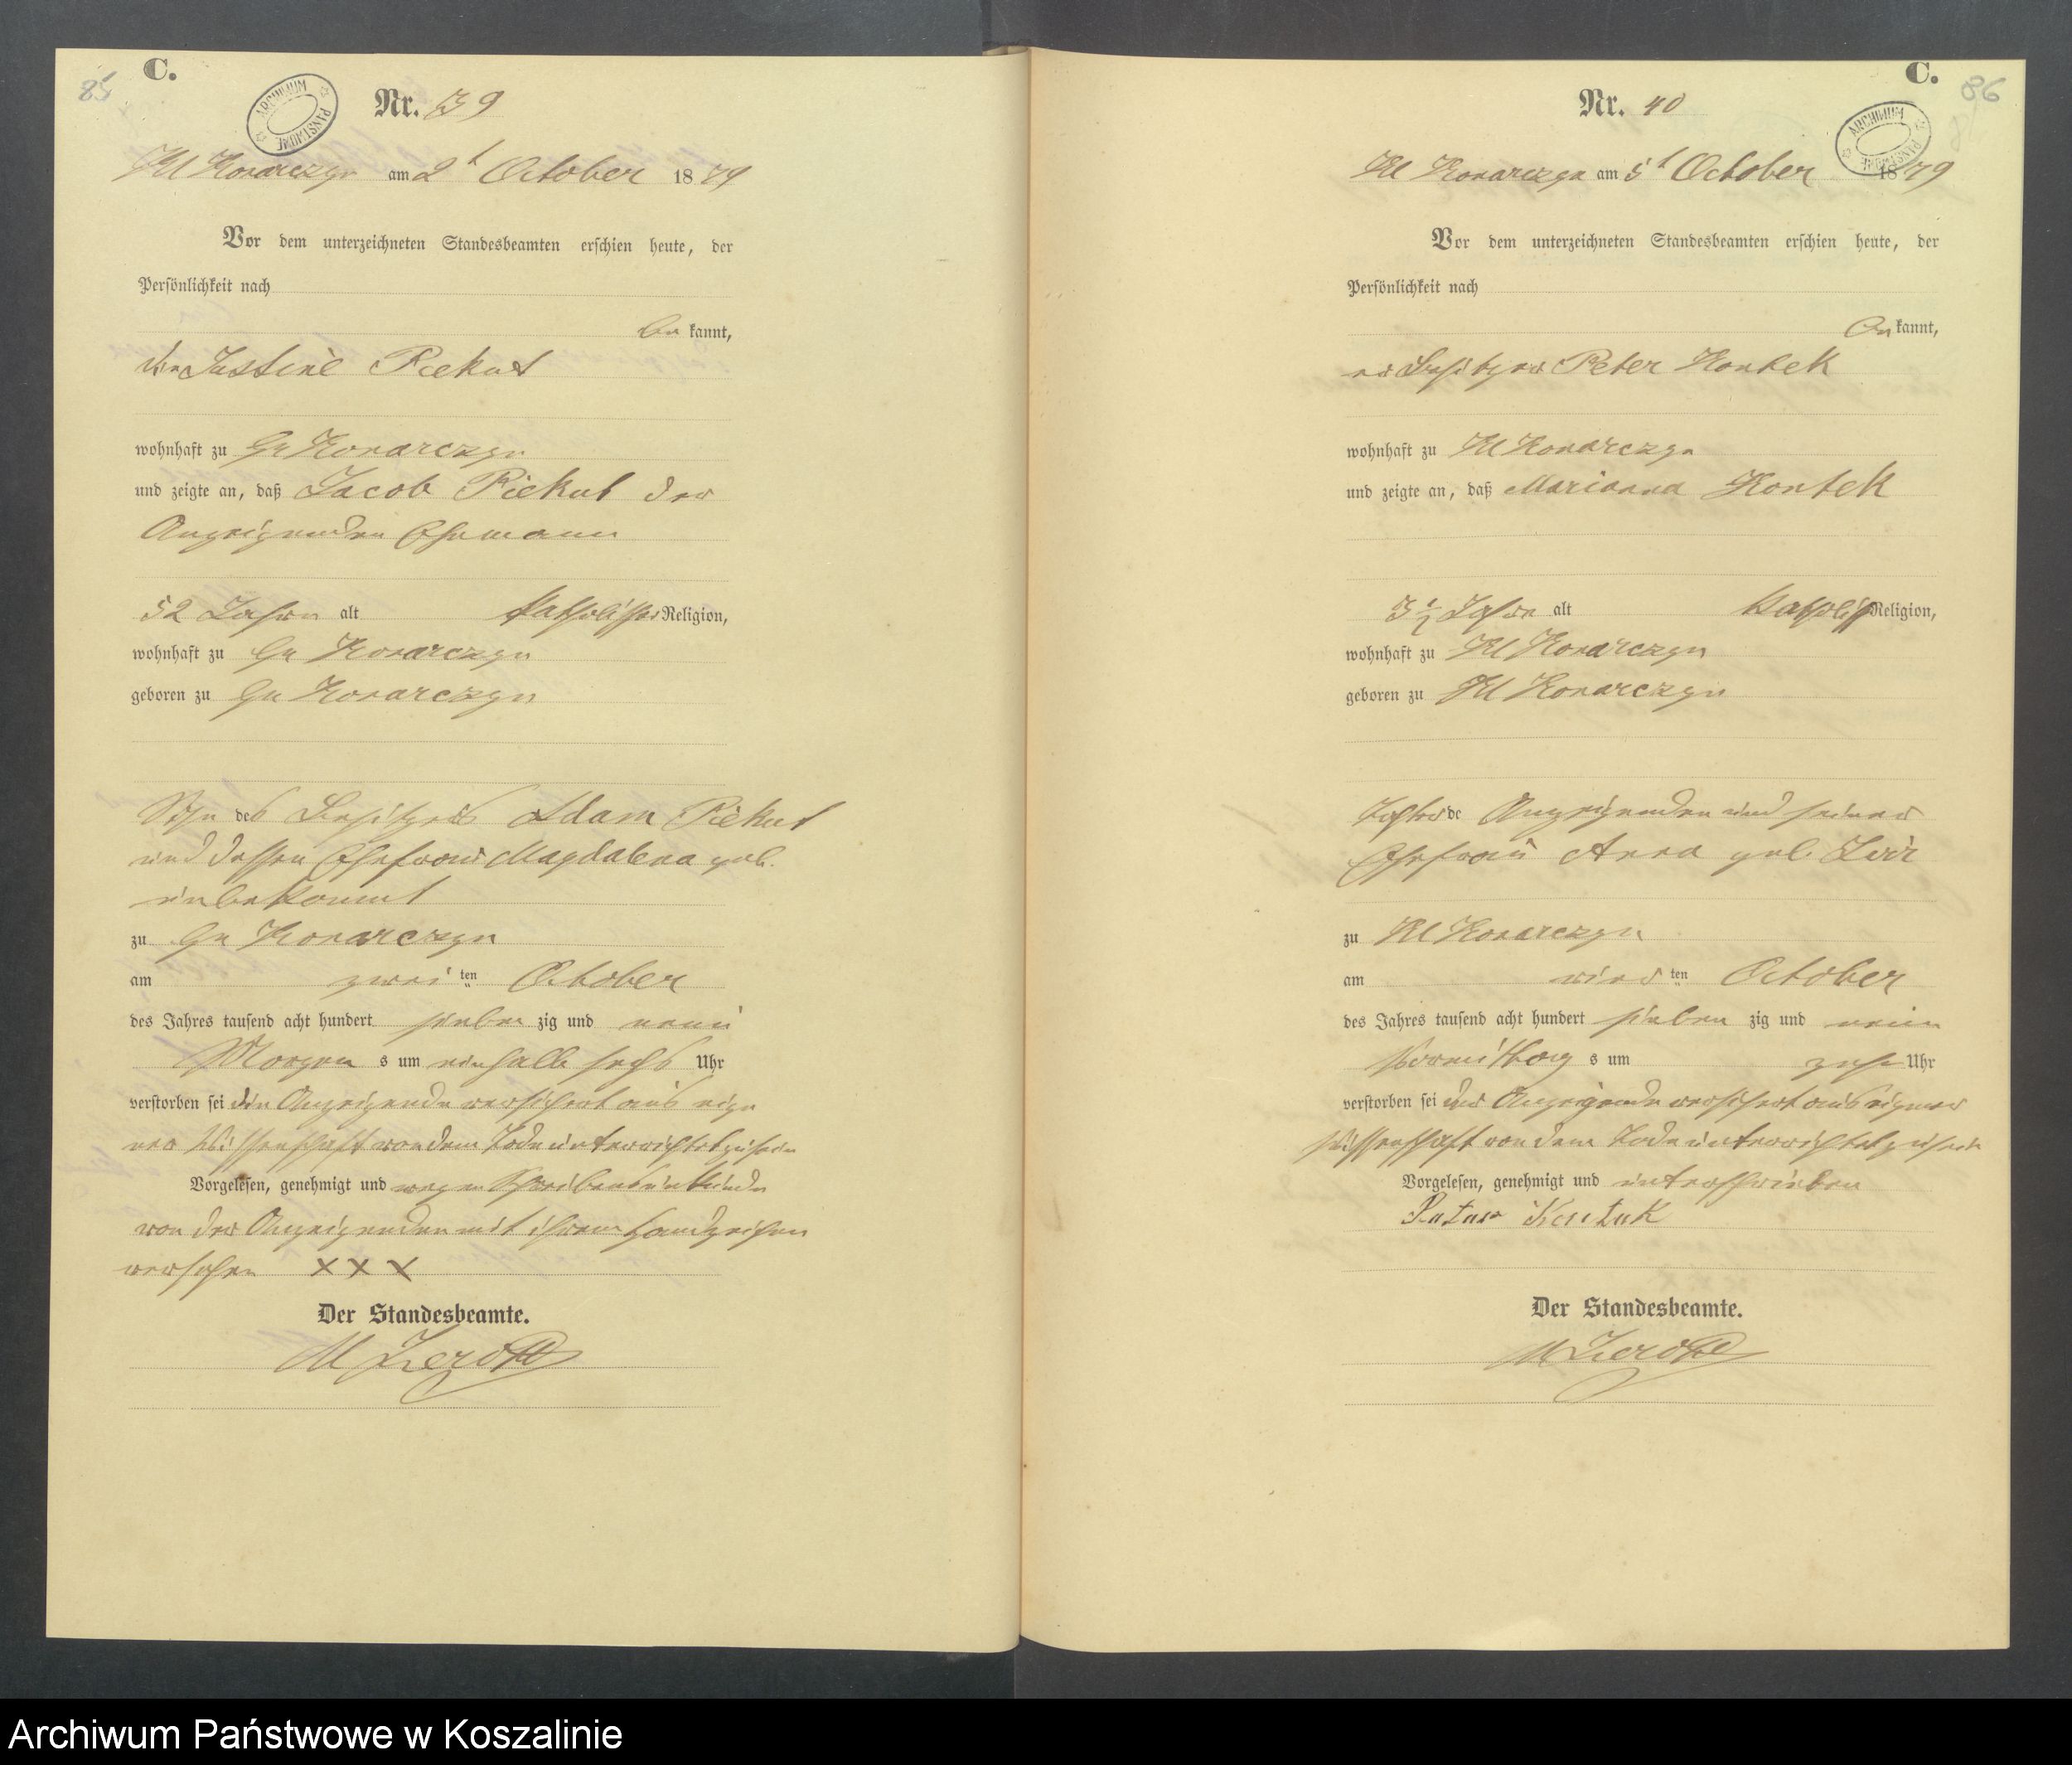 85
C.
ARCHIWUM PAŃSTWOWE
Nr. 39
Kl Konarczyn am 2t October 1879
Vor dem unterzeichneten Standesbeamten erschien heute, der
Persönlichkeit nach
be kannt,
die Justine Piekut
wohnhaft zu Gr Konarczyn
und zeigte an, daß Jacob Piekut der
Anzeigenden Ehemann
52 Jahre alt katholischer Religion,
wohnhaft zu Gr Konarczyn
geboren zu Gr Konarczyn
Sohn des Besitzers Adam Piekut
und dessen Ehefrau Magdalena geb.
unbekannt
zu Gr Konarczyn
am zwei ten October
des Jahres tausend acht hundert sieben zig und neun
Morgen s um ein halb sechs Uhr
verstorben sei die Anzeigende versichert aus eige
ner Wissenschaft von dem Tode unterrichtet zu sein
Vorgelesen, genehmigt und wegen Schreibensunkunde
von der Anzeigenden mit ihrem Handzeichen
versehen XXX
Der Standesbeamte.
M
C.
86
ARCHIWUM PAŃSTWOWE
Nr. 40
Kl Konarczyn am 5t October 1879
Vor dem unterzeichneten Standesbeamten erschien heute, der
Persönlichkeit nach
be kannt,
er Besitzer Peter Kontek
wohnhaft zu Kl Konarczyn
und zeigte an, daß Marianna Kontek
3½ Jahre alt Katholisch Religion,
wohnhaft zu Kl Konarczyn
geboren zu Kl Konarczyn
Tochter de Anzeigenden und seiner
Ehefrau Anna geb.
zu Kl Konarczyn
am vier ten October
des Jahres tausend acht hundert sieben zig und neun
Vormittag s um zehn Uhr
verstorben sei der Anzeigende versichert aus eigener
Wissenschaft von dem Tode unterrichtet zu sein
Vorgelesen, genehmigt und unterschrieben
Peter Kontek
Der Standesbeamte.
M
Archiwum Państwowe w Koszalinie